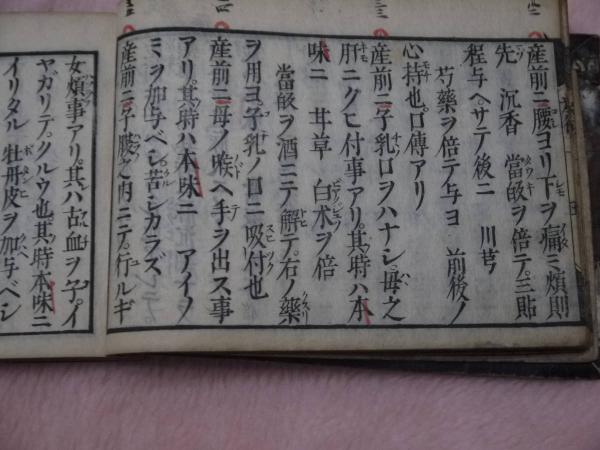 産前ニ腰ヨリ下ヲ痛ミ煩則
先 沉香 當皈ヲ倍テ三貼
程与ヘサテ後ニ 川芎
芍藥ヲ倍テ与ヨ 前後ノ
心持也口傳アリ
産前ニ子乳口ヲハナシ母之
肝ニクヒ付事アリ其時ハ本
味ニ 甘草 白朮ヲ倍
當皈ヲ酒ニテ解テ右ノ藥
ヲ用ヨ子乳ノ口ニ吸付也
産前ニ母ノ喉ヘ手ヲ出ス事
アリ其時ハ本味ニ アイノ
ミヲ加与ベシ苦シカラズ
産前ニ子腰之内ニテ行ルギ
女煩事アリ其ハ古血ヲ子イ
ヤガリテクルウ也其時本味ニ
イリタル 牡丹皮ヲ加与ベシ